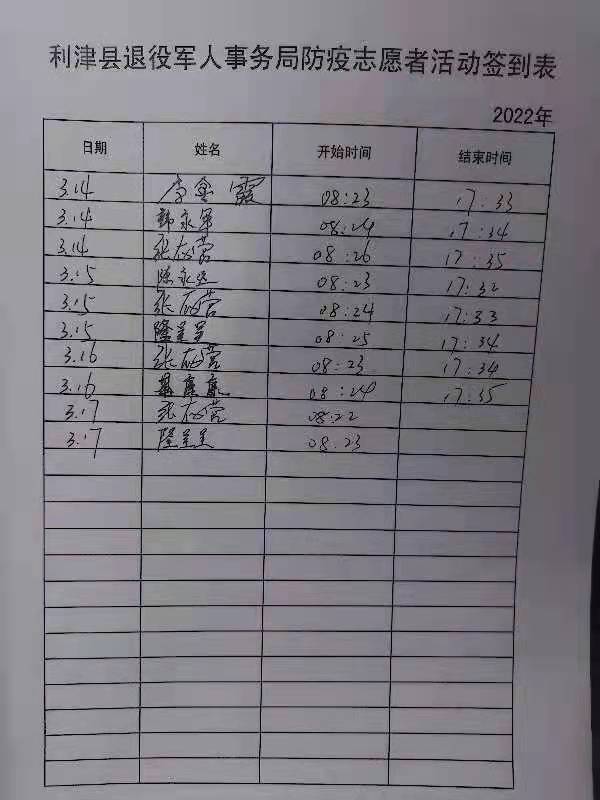 利津县退役军人事务局防疫志愿者活动签到表
2022年
日期 姓名 开始时间 结束时间
3.14 李金霞 08:23 17:33
3.14 韩永军 08:24 17:34
3.14 张 营 08:26 17:35
3.15 陈永 08:23 17:32
3.15 张 营 08:24 17:33
3.15 隆呈呈 08:25 17:34
3.16 张 营 08:23 17:34
3.16 08:24 17:35
3.17 张 营 08:22
3.17 隆呈呈 08:23